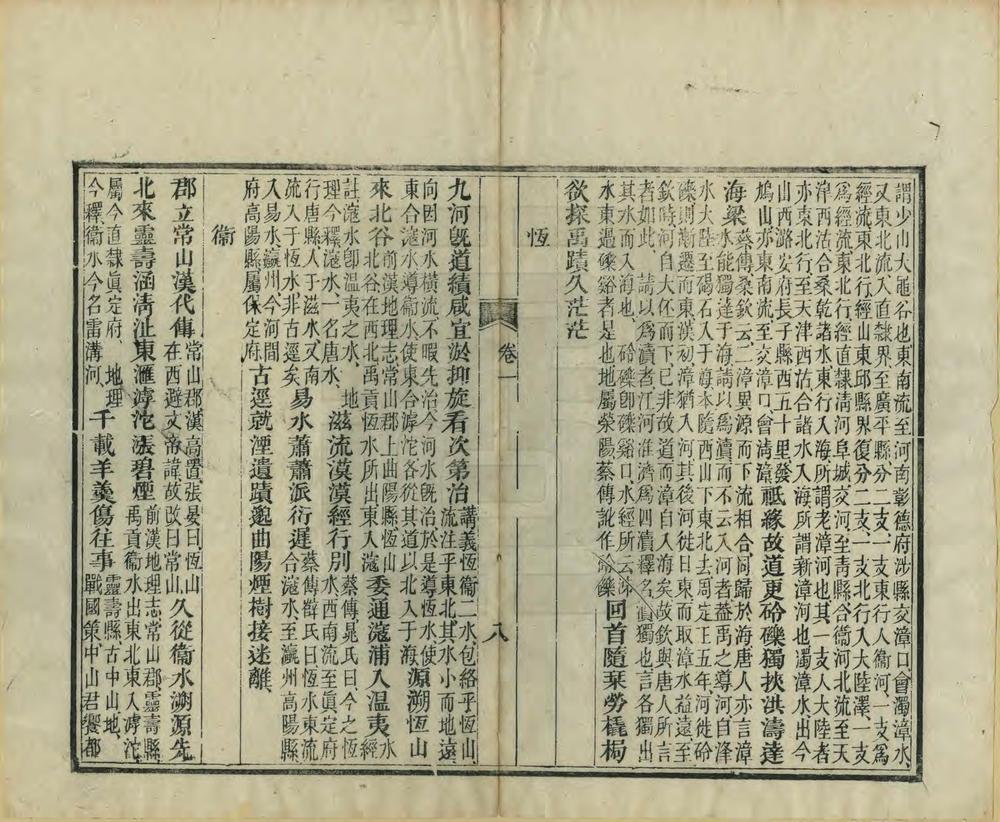 謂少山大黽谷也東南流至河南彰德府涉縣交漳口會濁漳水
又東北流入直隸界至廣平縣分二支一支東行人衞河一支爲
經流東北行經山東邱縣界復分二支一支北行入大陸澤一支
爲經流東北行經直隸淸河阜城交河至靑縣合衞河北流至天
津西沽合桑乾諸水東行入海所謂老漳河也其一支入大陸者
亦東北行至天津西沽合諸水入海所謂新漳河也濁漳水出今
山西潞安府長子縣西五十里發
鳩山亦東南流至交漳口會淸漳 祗緣故道更砱礫獨挾洪濤達
海梁 蔡傳桑欽云二漳異源而下流相合同歸於海唐人亦言漳
水能獨達于海請以爲瀆而不云入河者蓋禹之導河自洚
水大陸至碣石入于海本隨西山下東北去周定王五年河徙砱
礫則漸遷而東漢初漳猶入河其後河徙日東而取漳水益遠至
欽時河自大伾而下已非故道而漳自入海矣故欽與唐人所言
者如此 請以爲瀆者江河淮濟爲四瀆釋名瀆獨也言各獨出
其水而入海也 砱礫卽礫谿口水經所云泲
水東過礫谿者是也地屬滎陽蔡傳訛作砱礫 回首隨栞勞橇梮
欲探禹蹟久茫茫
恆
九河旣道績咸宜淤抑旋看次第治 講義恆衞二水包絡乎恆山
流注乎東北其水小而地遠
向因河水橫流不暇先治今河水旣治於是導恆水使
東合滱水導衞水使東合滹沱各從其道以北入于海 源溯恆山
來北谷 前漢地理志常山郡上曲陽縣恆山
北谷在西北禹貢恆水所出東入滱 委通滱浦入溫夷 水經
註滱水卽溫夷之水 地
理今釋滱水一名唐水 滋流漠漠經行別 蔡傳晁氏曰今之恆
水西南流至眞定府
行唐縣入于滋水又南
流入于恆水非古逕矣 易水蕭蕭派衍遲 蔡傳薛氏曰恆水東流
合滱水至瀛州高陽縣
入易水瀛州今河間
府高陽縣屬保定府 古逕就湮遺蹟邈曲陽煙樹接迷離
衞
郡立常山漢代傳 常山郡漢高置張晏曰恆山
在西避文帝諱故改曰常山 久從衞水溯源先
北來靈壽涵淸沚東滙滹沱漲碧煙 前漢地理志常山郡靈壽縣
禹貢衞水出東北東入滹沱
屬今直隸眞定府 地理
今釋衞水今名雷溝河 千載羊羹傷往事 靈壽縣古中山地
戰國策中山君饗都
卷一
八